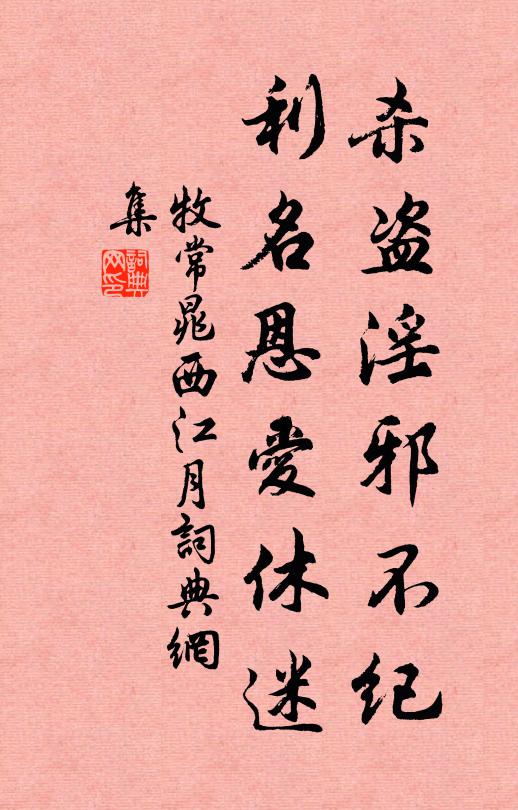 杀盗淫邪不纪
利名恩爱休迷
牧常晁西江月詞典網
集
詞典网印